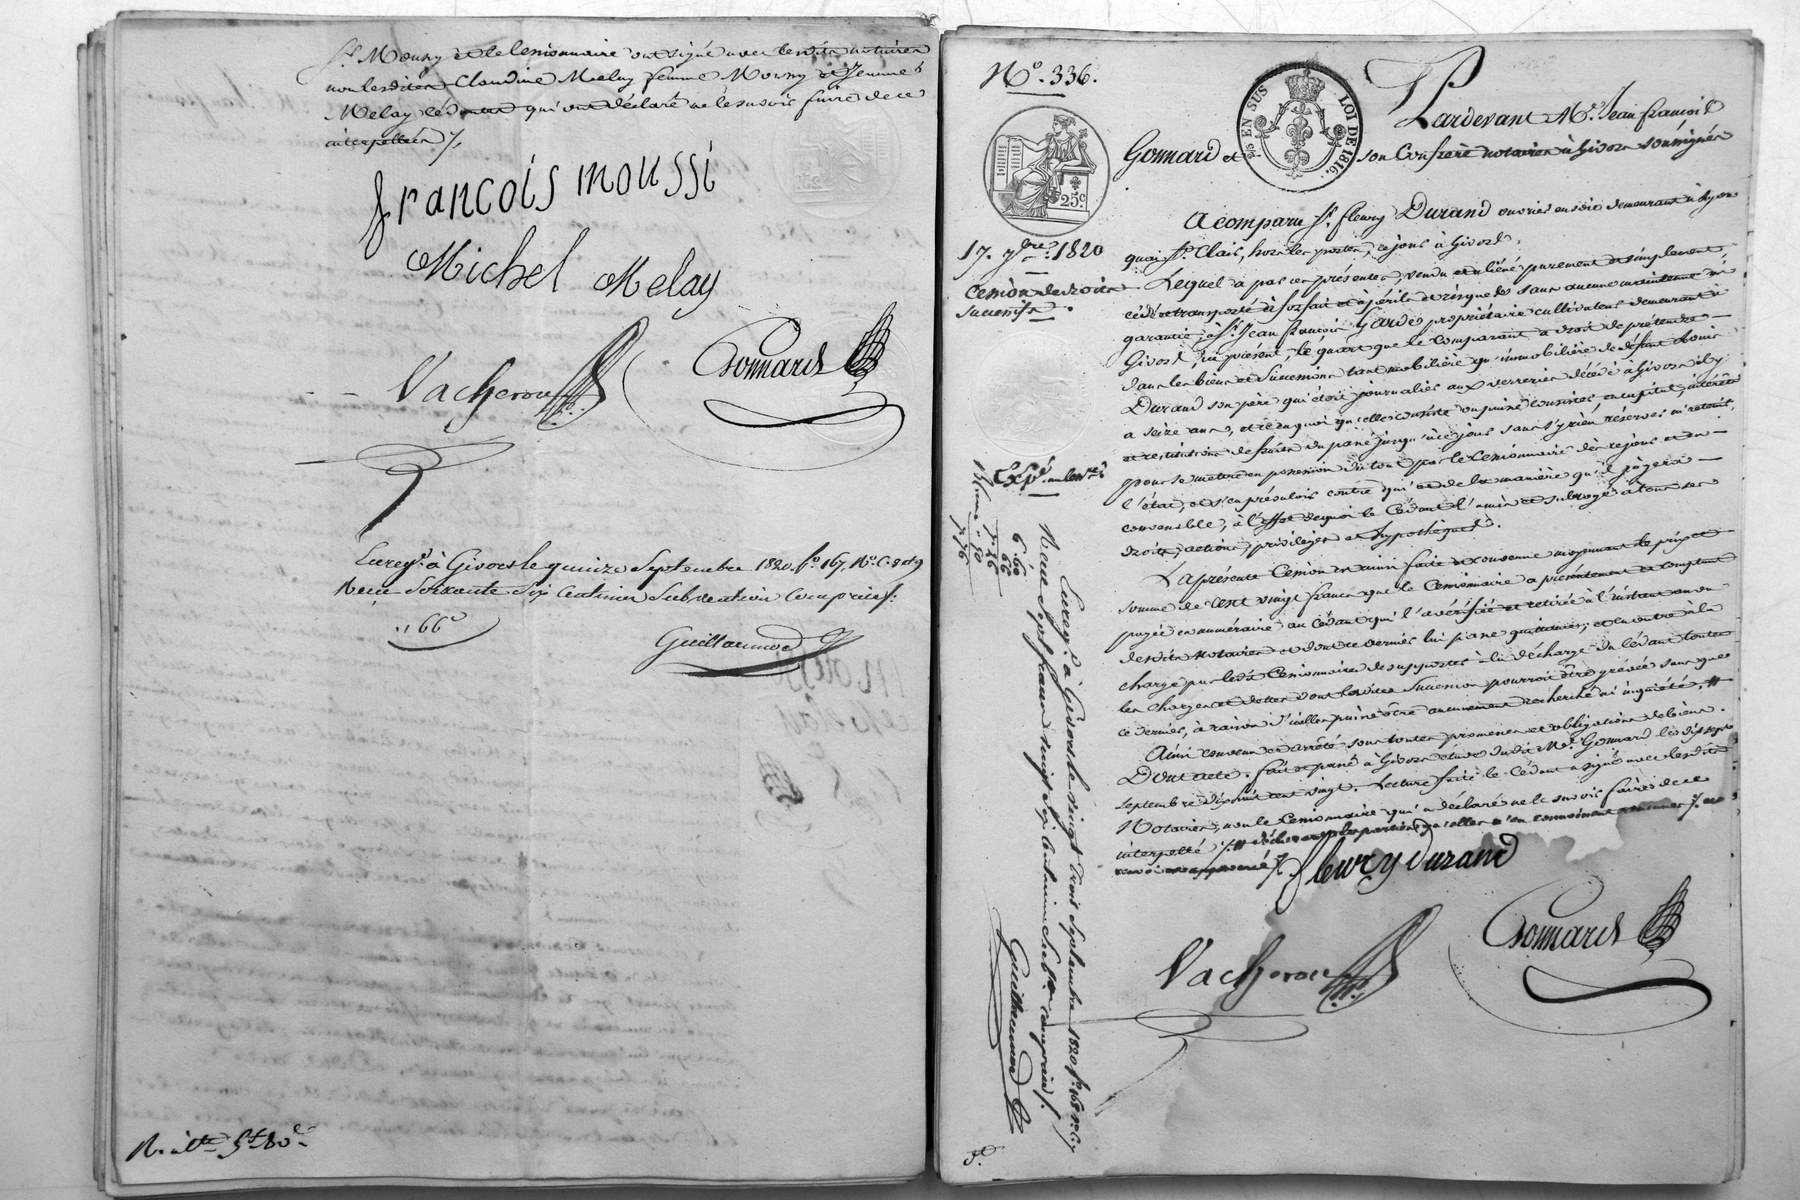 Sr. Moussy et le Cessionnaire ont signé avec lesdits notaires
non lesdites Claudine Melay femme Moussy et Jeanne
Melay qui ont déclaré ne le savoir faire de ce
interpellées ./.
françois moussi
Michel Melay
Vacheron
Gonnard
Enregé. à Givors le quinze Septembre 1820. fo. 167, Ro. C. 8 et 9
Reçu Soixante Six Centimes Subvention Comprise.
"66c
Guillaumod
No. 336.
EN SUS LOI DE 1816.
25c.
Pardevant Me. Jean françois
Gonnard et son Confrère notaires à Givors soussignés
17. 7bre. 1820
Cession de droits
successifs.
A comparu Sr. fleury Durand ouvrier en soie demeurant à Lyon
quai St. Clair, hors les portes, ce jour à Givors,
Lequel a par ces présentes, vendu et aliéné purement et simplement,
cédé et transporté à forfait et à périls et risques et sans aucune maintenue ni
garantie, à Sr. Jean françois Garde propriétaire cultivateur demeurant à
Givors, ici présent le quart que le Comparant a droit de prétendre
dans les biens et Succession tant mobilière qu'immobilière de défunt Louis
Durand son père qui étoit journalier aux verreries décédé à Givors il y
a seize ans, et en quoi qu'elle consiste ou puisse consister en capital, intérêts
et restitutions de fruits du passé jusqu'à ce jour sans s'y rien réserver ni retenir,
pour se mettre en possession du tout par le Cessionnaire dès ce jour et en
l'état, et s'en prévaloir contre qui et de la manière qu'il jugera
convenable, à l'effet de quoi le Cédant l'a mis et subrogé à tous ses
droits, actions, privilèges et hypothèques.
La présente Cession est ainsi faite et consentie moyennant le prix et
somme de Cent vingt francs que le Cessionnaire a présentement et comptant
payée en numéraire au Cédant qui l'a vérifiée et retirée à l'instant au vu
desdits notaires et dont ce dernier lui passe quittance; et en outre à la
charge par ledit Cessionnaire de supporter à la décharge du Cédant toutes
les charges et dettes dont ladite Succession pourroit être grevée sans que
ce dernier, à raison d'icelles puisse être aucunement recherché ni inquiété. #
Ainsi convenu et arrêté sous toutes promesses et obligations de biens.
Dont acte. fait et passé à Givors étude dudit Me. Gonnard le dix sept
septembre dix huit cent vingt. Lecture faite le Cédant a signé avec lesdits
Notaires, non le Cessionnaire qui a déclaré ne le savoir faire de ce
interpellé ./. # déclarant les parties qu'elles n'en connoissent aucunes ./.
renvoi approuvé ./.
fleury durand
Vacheron
Gonnard
Expé.
6. 60
66
7. 26
7. 76
Enregé. à Givors le vingt trois Septembre 1820 fo. 168
Reçu Sept francs vingt Six Centimes Subvon. comprise.
Guillaumod